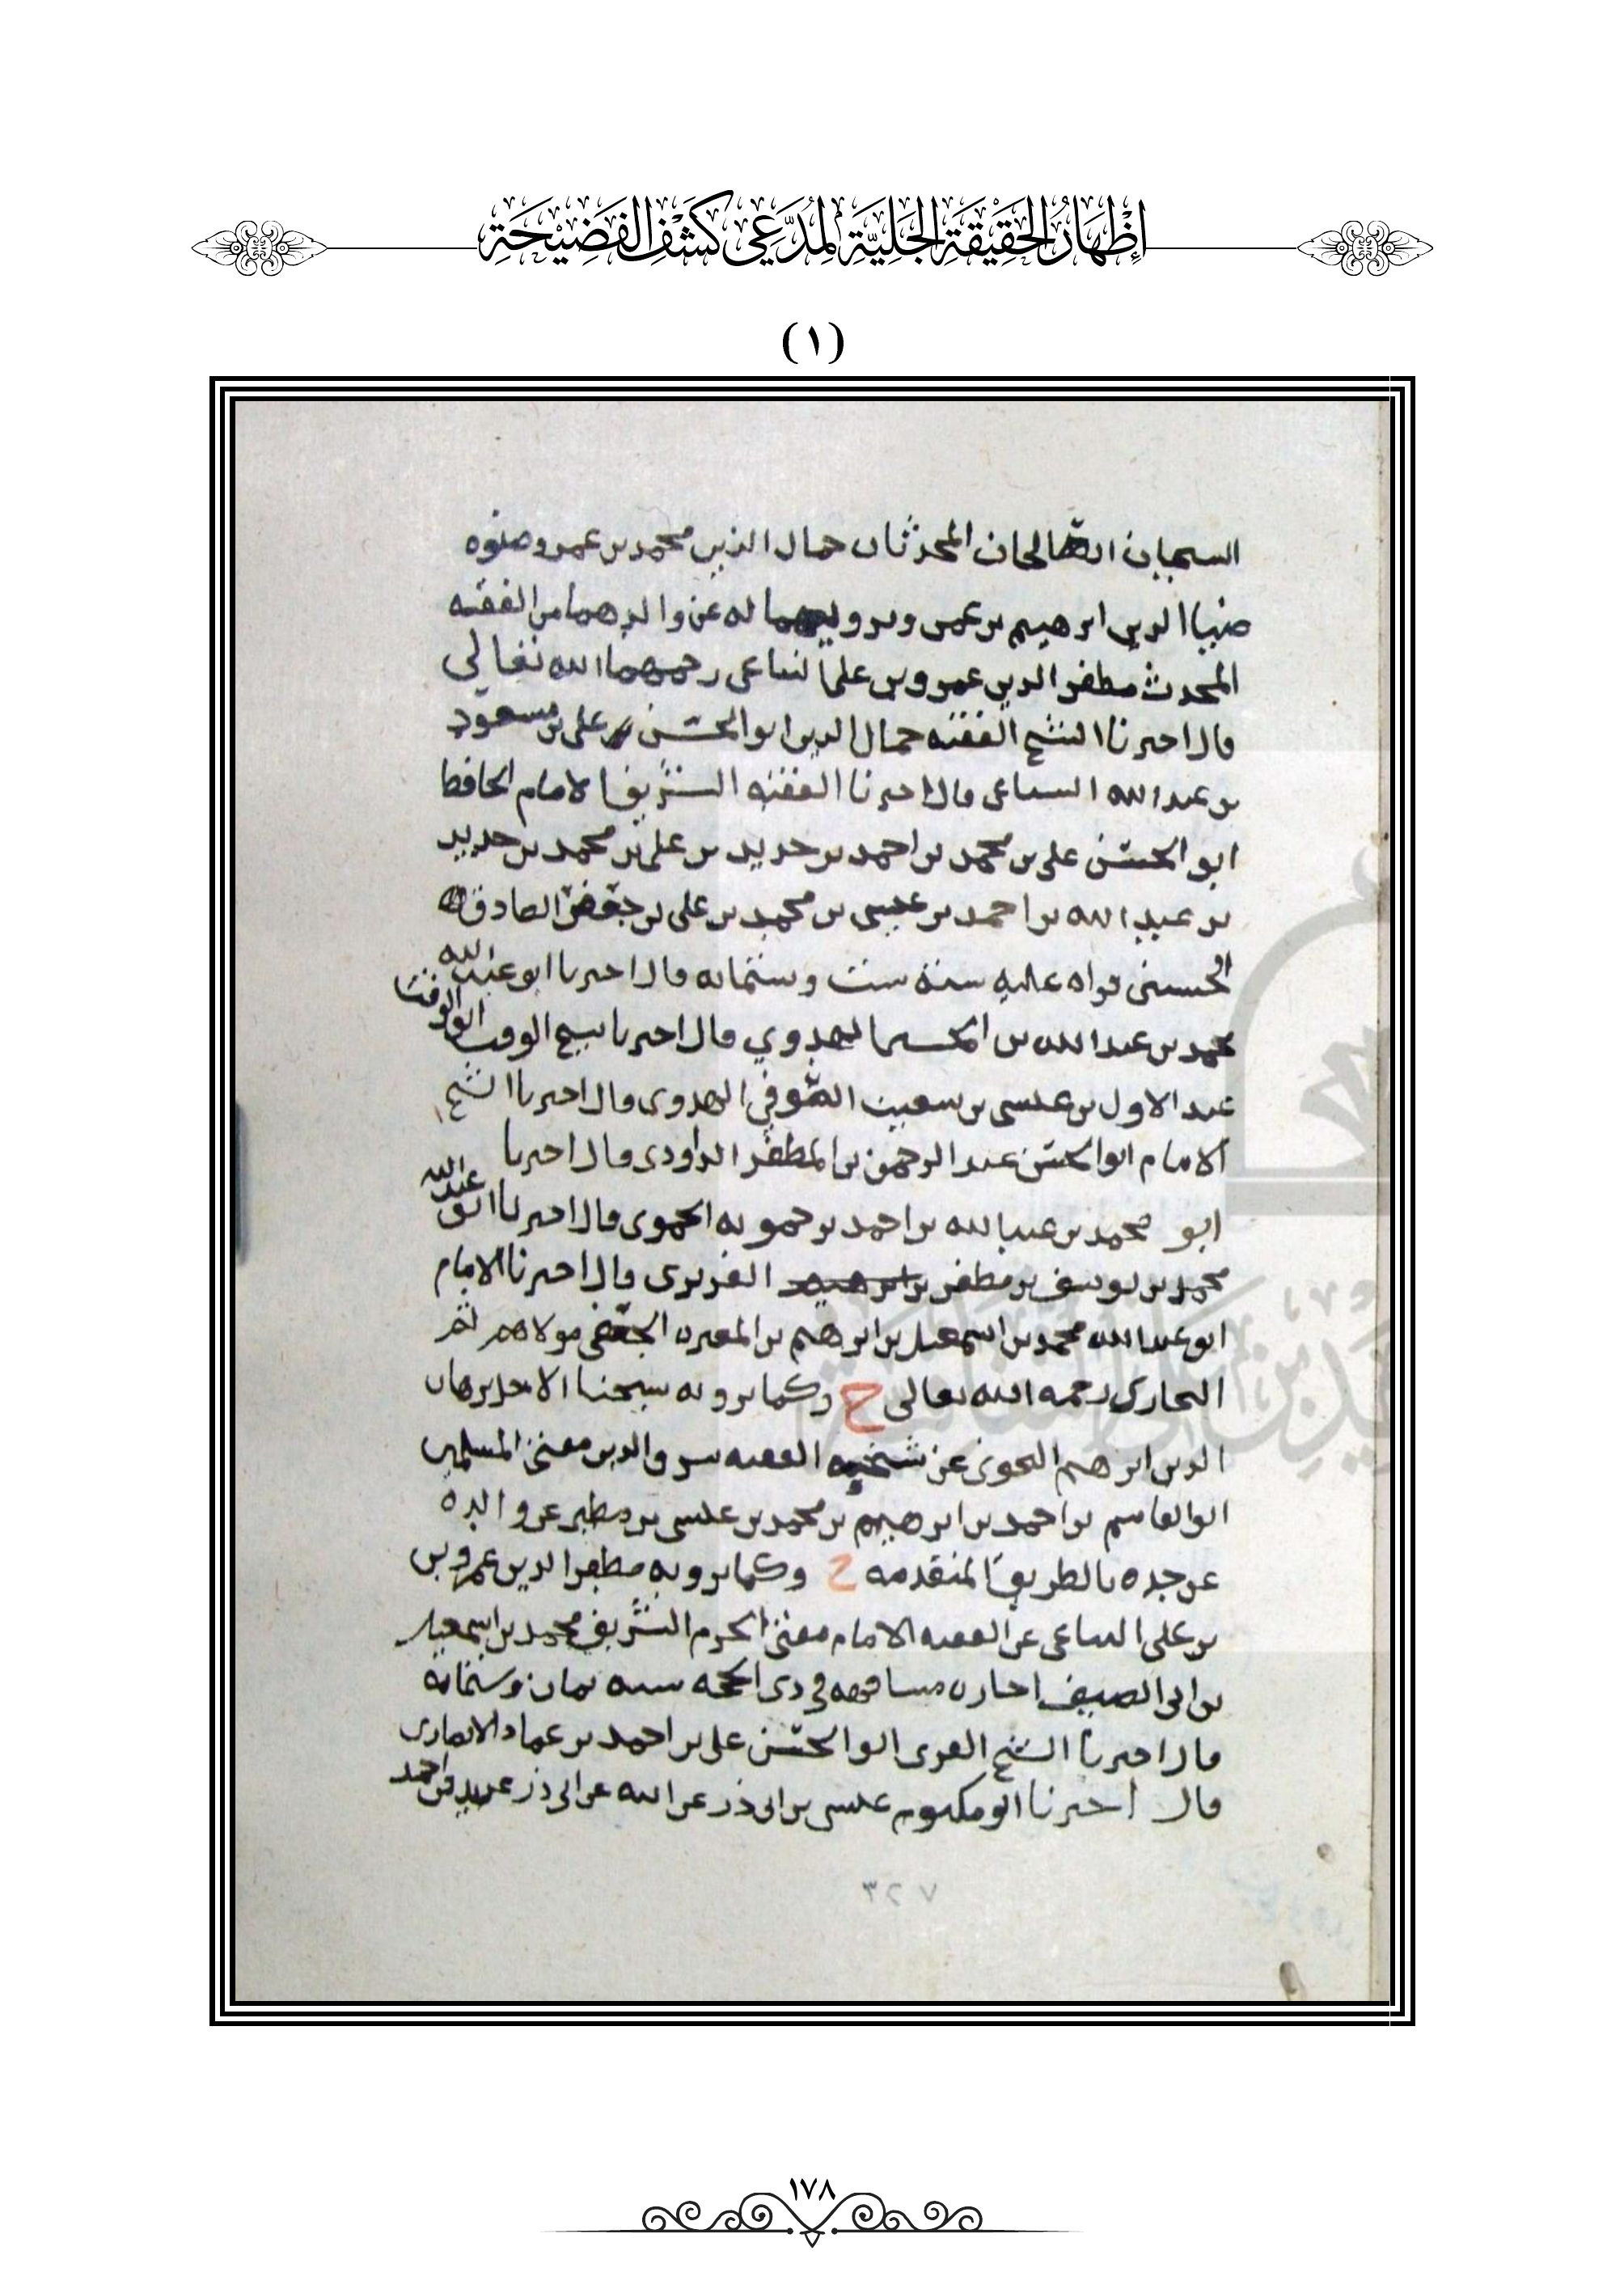 إِظْهَارُ الحَقِيقَةِ الجَلِيَّةِ لِمُدَّعِي كَشْفِ الفَضِيحَةِ
(١)
الصالحان المحدثان جمال الدين محمد بن عمر وصنوه
ضيا الدين ابرهيم بن عمر له عن والدهما من الفقيه
المحدث مظفر الدين عمرو بن على رحمهما الله تعالى
قال اخبرنا الشيخ الفقيه جمال الدين ابو الحسن على بن مسعود
بن عبد الله قال اخبرنا الفقيه الشريف الامام الحافظ
ابو الحسن على بن محمد بن احمد بن حديد بن على بن محمد بن حديد
بن عبيد الله بن احمد بن عيسى بن محمد بن على بن جعفر الصادق
الحسينى عليه سنة ست وستمائه قال اخبرنا ابو عبد الله
محمد بن عبد الله بن الهروي قال اخبرنا شيخ الوقت ابو الوقت
عبد الاول بن عيسى بن شعيب الصوفي الهروى قال اخبرنا الشيخ
الامام ابو الحسن عبد الرحمن بن المظفر الداودى قال اخبرنا
ابو محمد بن عبد الله بن احمد بن حمويه الحموى قال اخبرنا ابو عبد الله
محمد بن يوسف بن مطفر الفربرى قال اخبرنا الامام
ابو عبد الله محمد بن اسمعيل بن ابرهيم بن المغيره الجعفى مولاهم ثم
البخارى رحمه الله تعالى ح وكما يرويه شيخنا الاجل برهان
الدين ابرهيم عن شيخه الفقيه شرف الدين مفتى المسلمين
ابو القاسم بن احمد بن ابرهيم بن محمد بن عيسى بن مطير عن والده
عن جده بالطريق المتقدمه ح وكما يرويه مظفر الدين عمرو بن
بن على عن الفقيه الامام مفتى الحرم الشريف محمد بن اسمعيل
بن ابى الصيف فى ذى الحجه سنه ثمان وستمائه
قال اخبرنا الشيخ ابو الحسن على بن احمد بن عماد الانصارى
قال اخبرنا ابو مكتوم عيسى بن ابى ذر عن ابيه عن ابى ذر عبد بن احمد
٣٢٧
١٧٨